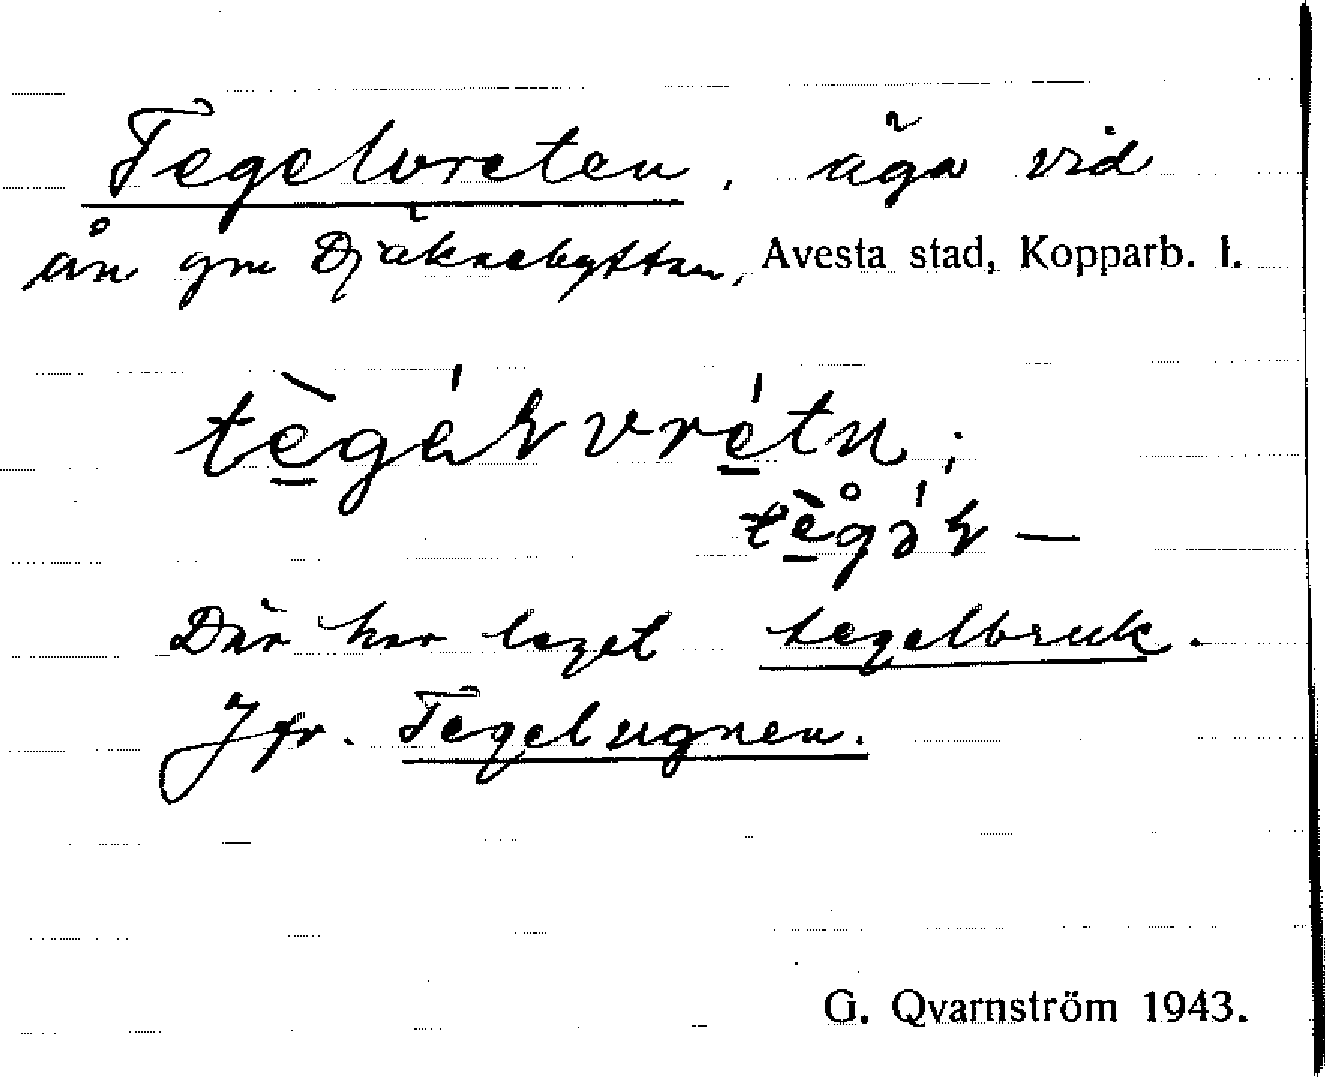 Tegelvreten, äga vid
ån gm Djäknehyttan, Avesta stad, Kopparb. l.
tèga̍ɭvre̍tn;
tèg̊ə̍ɭ—
Där har legat tegelbruk.
Jfr. Tegelugnen.
G. Qvarnström 1943.